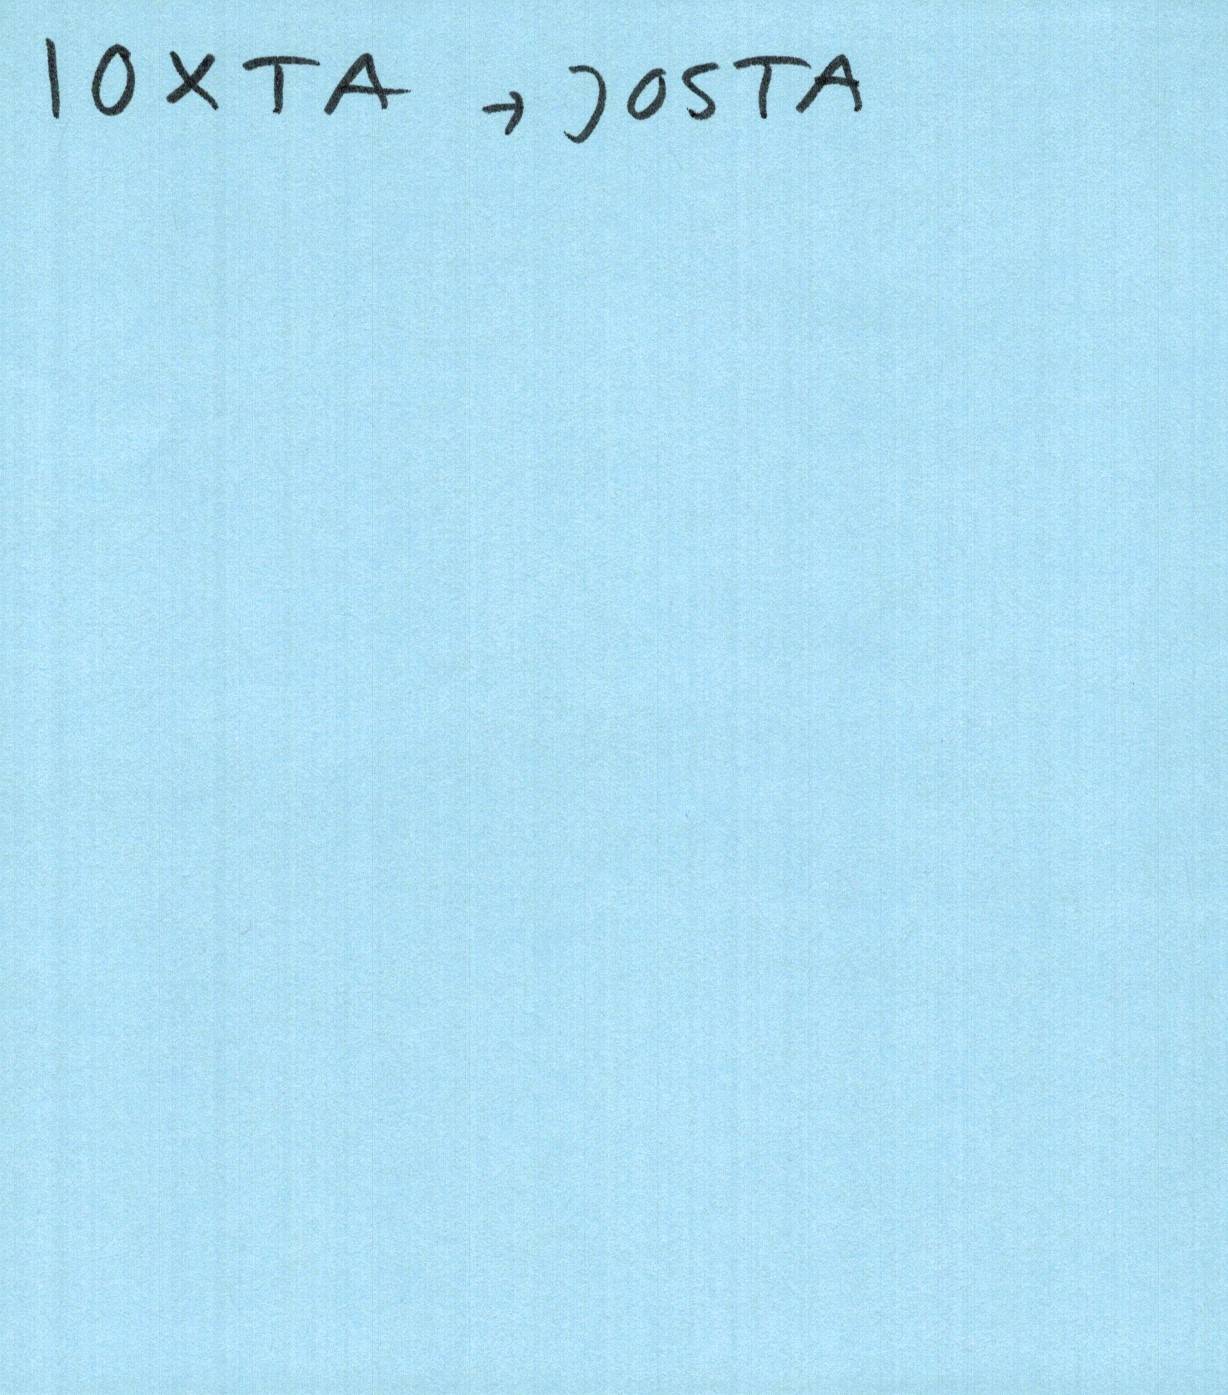 IOXTA → JOSTA